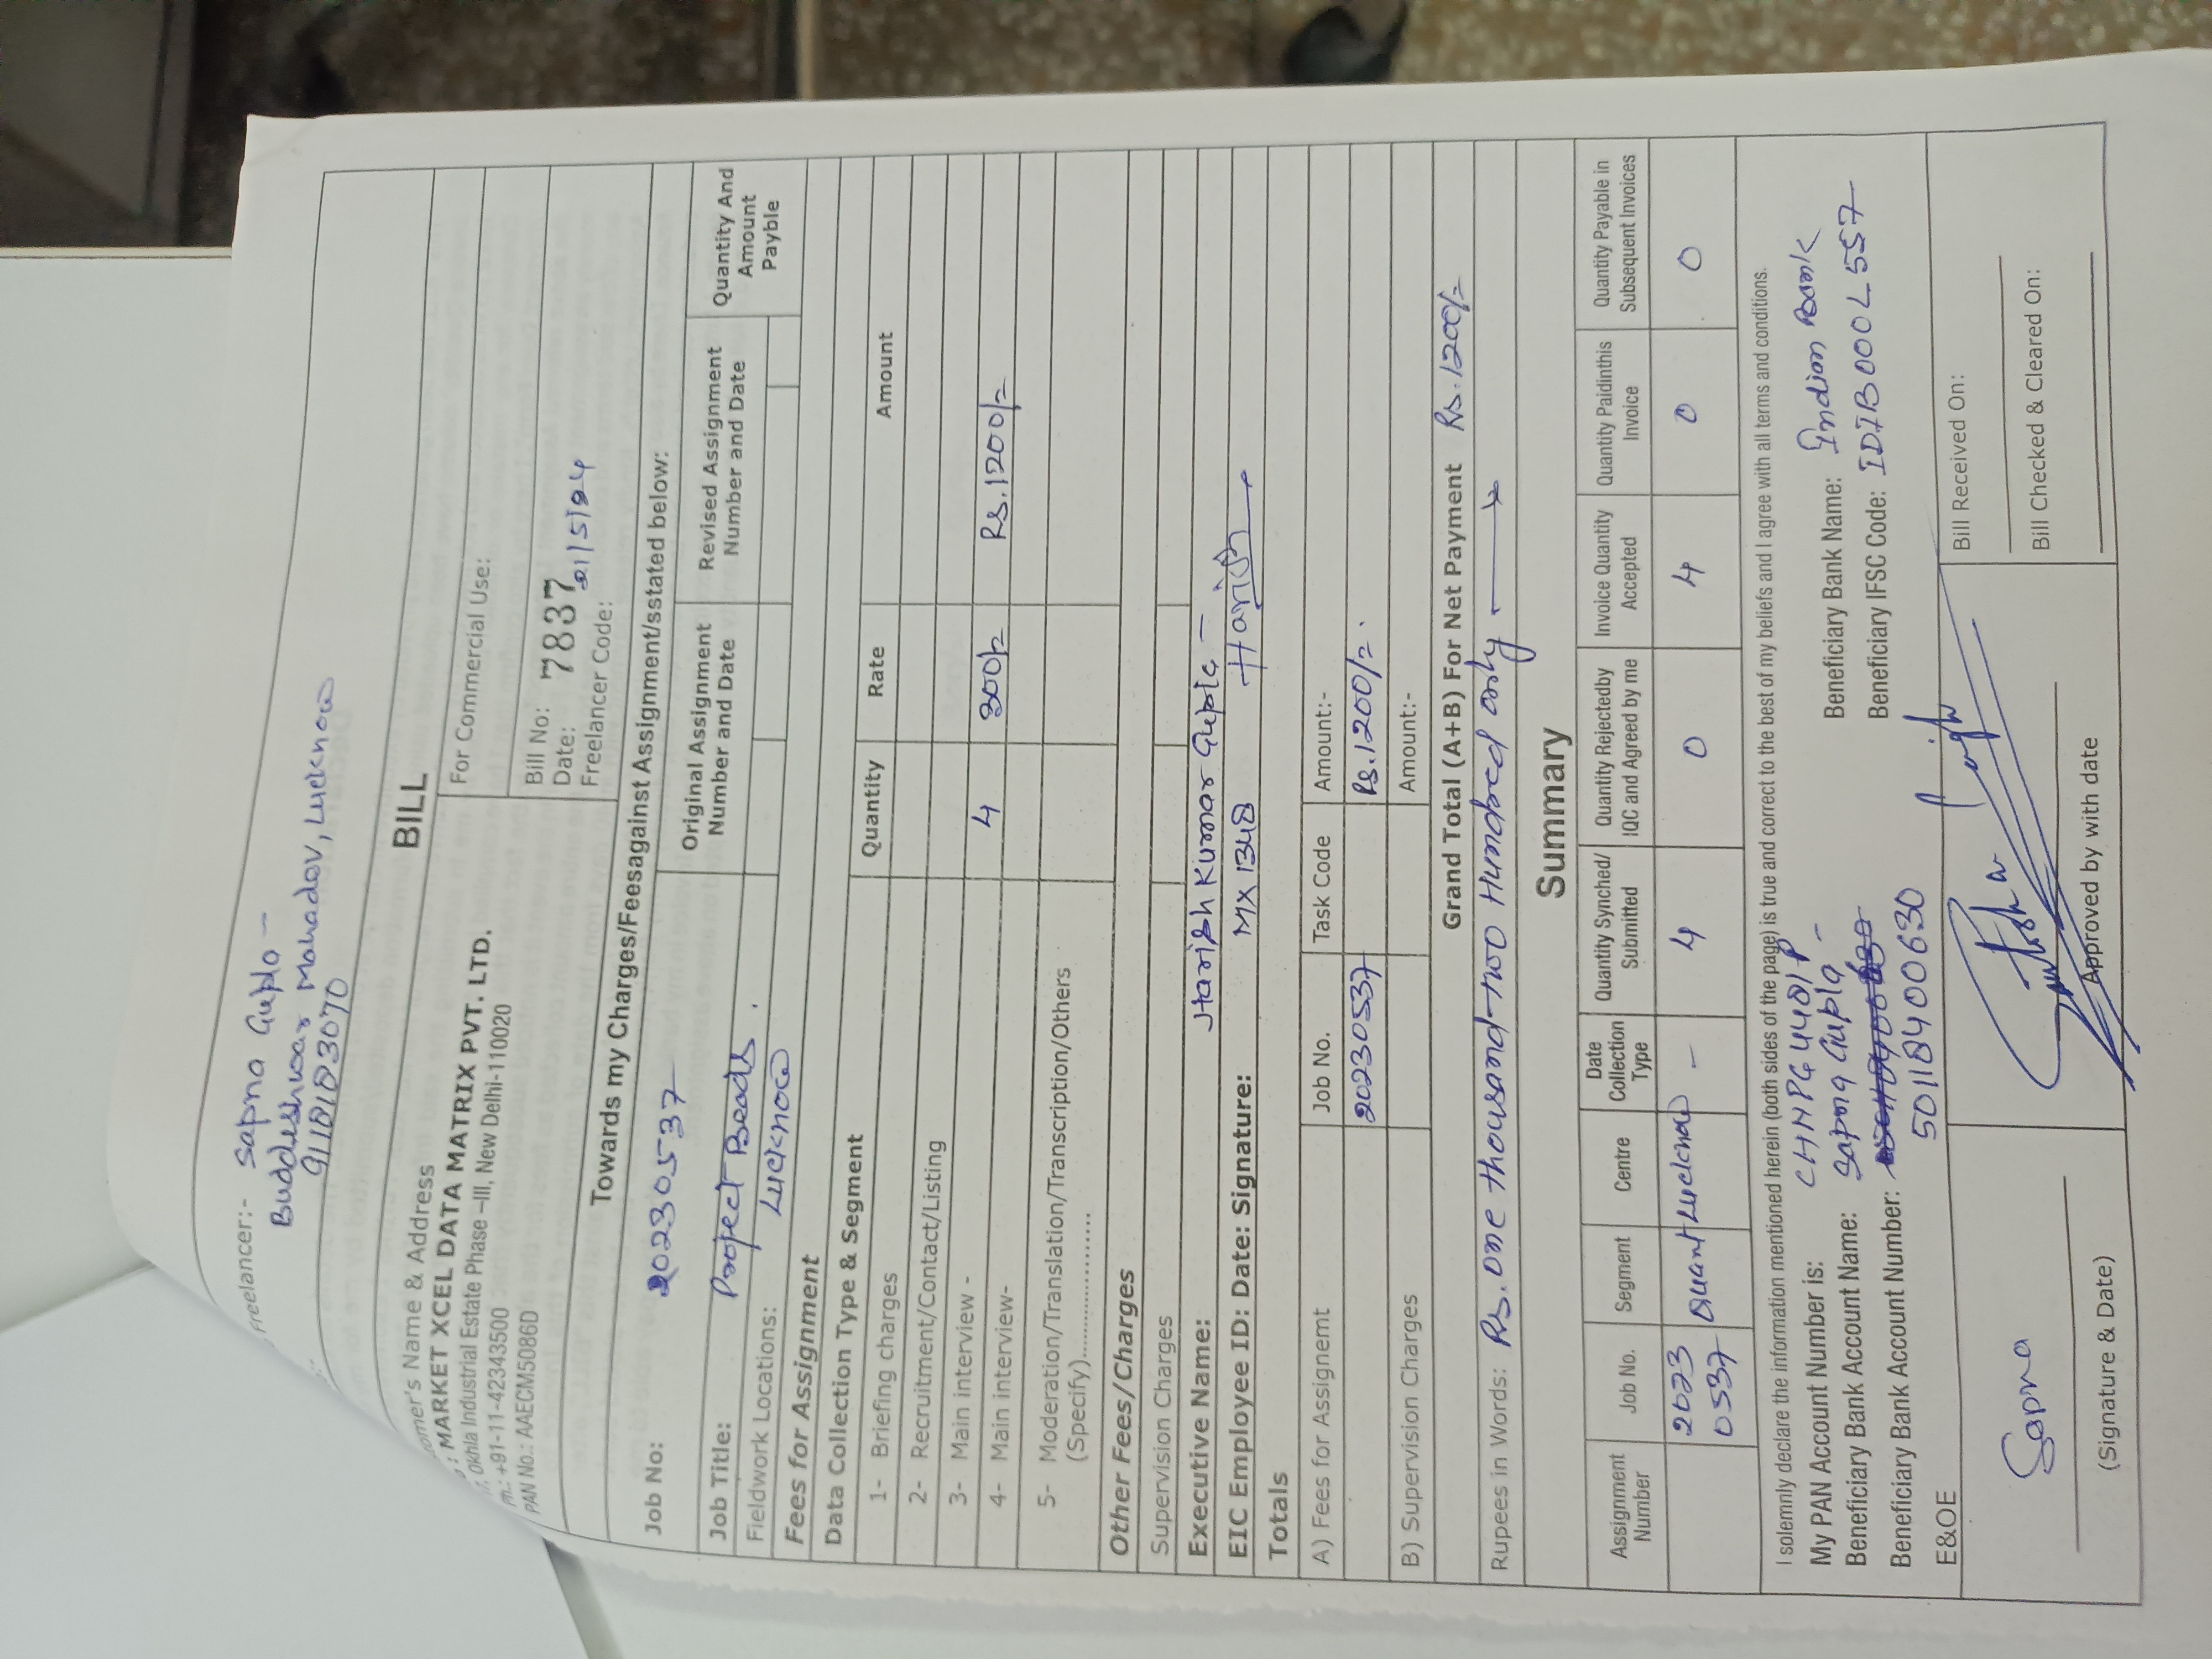 Freelancer:- Sapna Gupta –
Buddeshwar Mahadev, Lucknow
BILL
omer's Name & Address
MARKET XCEL DATA MATRIX PVT. LTD.
Okhla Industrial Estate Phase –III, New Delhi-110020
Ph.: +91-11-42343500
PAN No.: AAECM5086D
For Commercial Use:
Bill No: 7837
Date: 21/5/24
Freelancer Code:
Towards my Charges/Feesagainst Assignment/sstated below:
Job No: 20230537
Original Assignment Number and Date
Revised Assignment Number and Date
Quantity And Amount Payble
Job Title: Project Beads.
Fieldwork Locations: Lucknow
Fees for Assignment
Data Collection Type & Segment Quantity Rate Amount
1- Briefing charges
2- Recruitment/Contact/Listing
3- Main interview -
4- Main interview- 4 300/= Rs.1200/=
5- Moderation/Translation/Transcription/Others
(Specify)..................
Other Fees/Charges
Supervision Charges
Executive Name: Harish Kumar Gupta –
EIC Employee ID: Date: Signature: MX 1348 Harish
Totals
A) Fees for Assignemt Job No. Task Code Amount:-
20230537 Rs.1200/=.
B) Supervision Charges Amount:-
Grand Total (A+B) For Net Payment Rs.1200/=
Rupees in Words: Rs. One thousand-two Hundred only
Summary
Assignment Number Job No. Segment Centre Date Collection Type Quantity Synched/ Submitted Quantity Rejectedby IQC and Agreed by me Invoice Quantity Accepted Quantity Paidinthis Invoice Quantity Payable in Subsequent Invoices
2023 0537 Quant Lucknow – 4 0 4 0 0
I solemnly declare the information mentioned herein (both sides of the page) is true and correct to the best of my beliefs and I agree with all terms and conditions.
My PAN Account Number is:
Beneficiary Bank Name: Indian Bank
Beneficiary Bank Account Name: Sapna Gupta –
Beneficiary IFSC Code: IDIB000L557
Beneficiary Bank Account Number:
50118400630
E&OE
Bill Received On:
Sapna
Bill Checked & Cleared On:
(Signature & Date)
Approved by with date